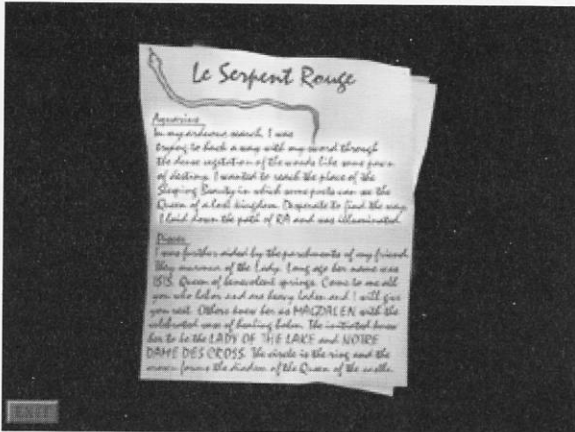 Le Serpent Rouge
Aquarius
In my arduous search, I was
trying to hack a way with my sword through
the dense vegetation of the woods like some pawn
of destiny. I wanted to reach the place of the
Sleeping Beauty in which some poets can see the
Queen of a lost kingdom. Desperate to find the way,
I laid down the path of RA and was illuminated.
Pisces
I was further aided by the parchments of my friend.
They murmur of the Lady. Long ago her name was
ISIS, Queen of benevolent springs. Come to me all
you who labor and are heavy laden and I will give
you rest. Others knew her as MAGDALEN with the
celebrated vase of healing balm. The initiated knew
her to be the LADY OF THE LAKE and NOTRE
DAME DES CROSS. The circle is the ring and the
crown forms the diadem of the Queen of the castle.
EXIT